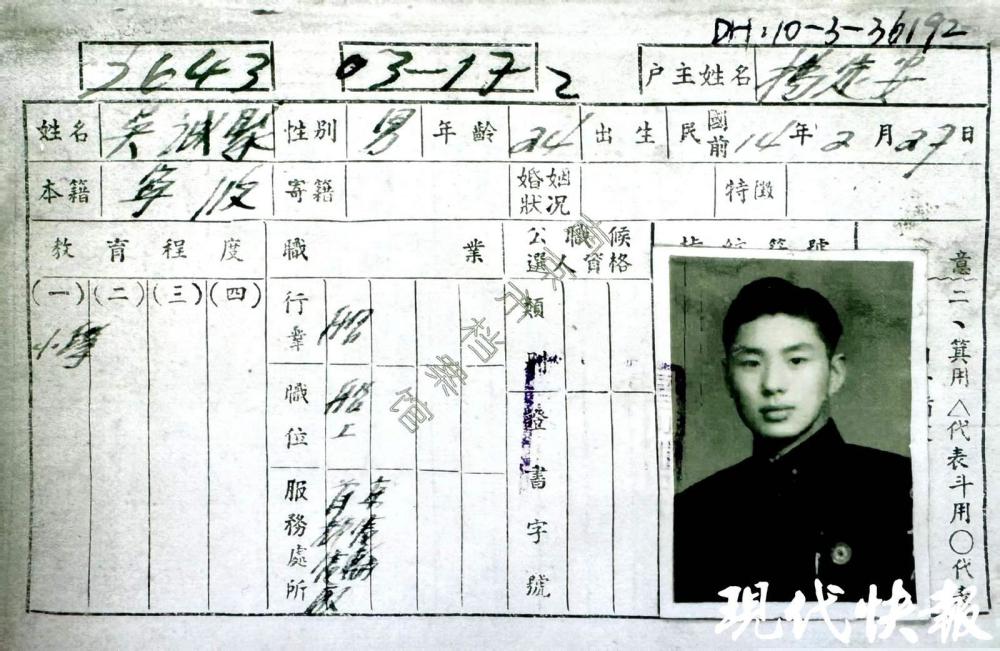 DH:10-3-36192
3643 03-17 2 户主姓名 楊
姓名 吴誠 性別 男 年齡 24 出生 民國前 14年2月27日
本籍 寧波 寄籍 婚姻狀況 特徵
教育程度 職業 公職候選人資格
(一) (二) (三) (四) 行業 船 類別
小學
職位 船工 證書字號
服務處所
意二、箕用△代表斗用○代表
南京市档案馆
現代快報